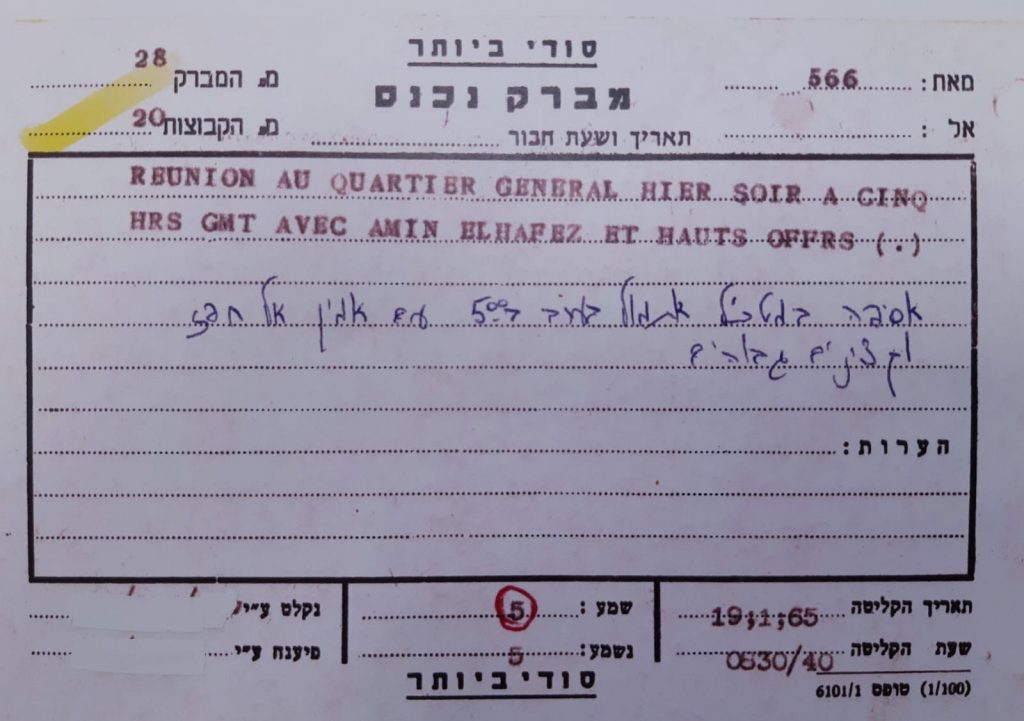 סודי ביותר
מאת: 566
מברק נכנס
מ. המברק 28
אל:
תאריך ושעת חבור
מ. הקבוצות 20
REUNION AU QUARTIER GENERAL HIER SOIR A CINQ
HRS GMT AVEC AMIN ELHAFEZ ET HAUTS OFFRS (.)
אסיפה במטכ"ל אתמול בערב ב-5⁰⁰ עם אמין אל חפז
וקצינים גבוהים
הערות:
תאריך הקליטה 19;1;65
שמע: 5
נקלט ע"י
שעת הקליטה 0830/40
נשמע: 5
פיענח ע"י
סודי ביותר
6101/1 טופס (1/100)